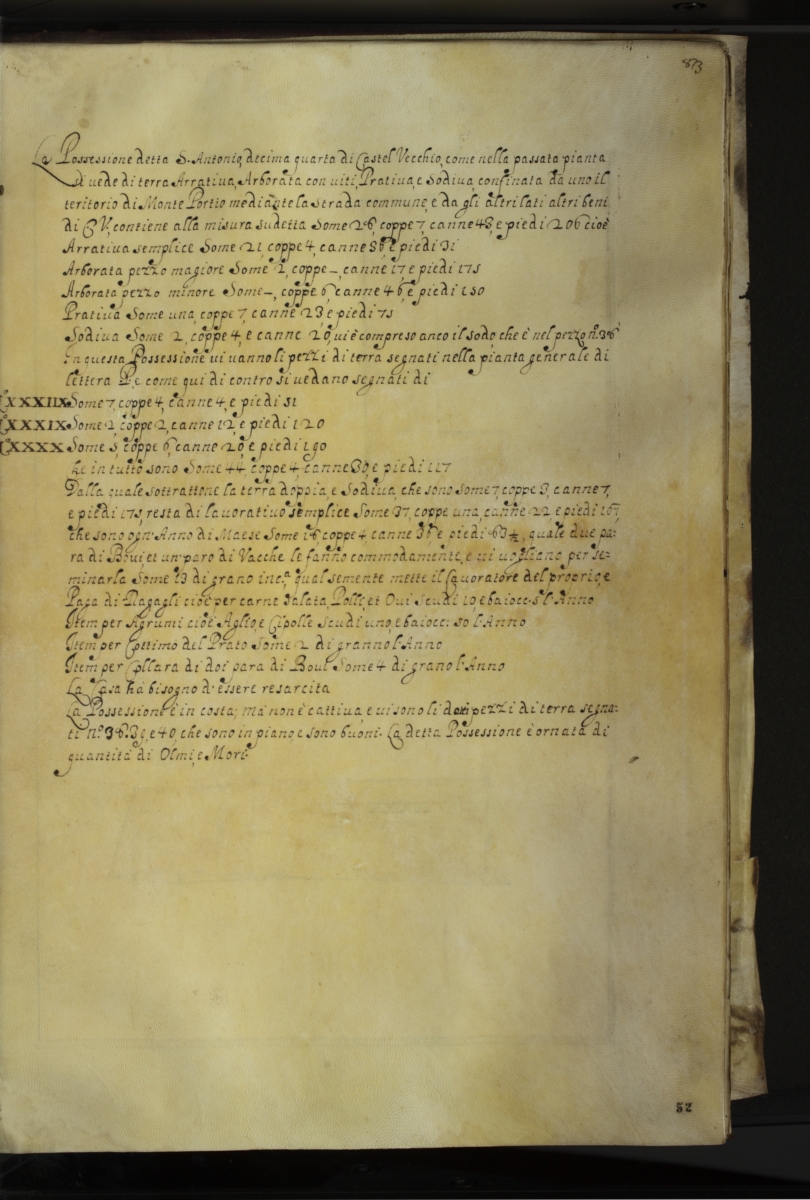 873
La Possessione detta S. Antonio, decima quarta di Castel Vecchio, come nella passata pianta
si vede di terra Arratiua, Arborata con uiti, Pratiua, e Sodiua, confinata da uno il
teritorio di Monte Portio mediante la strada commune, e da gli altri lati altri beni
di contiene alla misura sudetta Some 26, coppe 7, canne 48, e piedi 206 cioè
Arratiua semplice Some 21, coppe 4, canne e piedi 31
Arborata pezzo magiore Some 2, coppe –, canne 17 e piedi 175
Arborata pezzo minore Some –, coppe 6, canne 46, e piedi 150
Pratiua Some una, coppe 7, canne 23 e piedi 75
Sodiua Some 2, coppe 4, e canne 20, qui è compreso anco il sodo che è nel pezzo n.° 38
In questa Possessione ui uanno li pezzi di terra segnati nella pianta generale di
lettera e come qui di contro si uedano segnati di
CXXXIIX Some 7, coppe 4, canne 4, e piedi 51
CXXXIX Some 2 coppe 2, canne 12, e piedi 120
CXXXX Some 5, coppe 6, canne 20, e piedi 190
he in tutto sono Some 44, coppe 4, canne 39, e piedi 117
Dalla quale sottrattone la terra doppia, e Sodiua, che sono Some 7, coppe 3, canne 7,
e piedi 175, resta di lauoratiuo semplice Some 37, coppe una, canne 22 e piedi 167,
che sono ogn' Anno di Maese Some 18 coppe 4 canne e piedi 83 ½, quale due pa:
ra di Boui, et un paro di Vacche le fanno commodamente, e ui uogliano per se:
minarla Some 13 di grano inc.ª qual semente mette il Lauoratore del proprio, e
Paga di Regagli cioè per carne Salata, Polli, et Oui Scudi 10, e baiocc: 5 l'Anno
Item per Agrumi cioè Aglio, e Cipolle Scudi uno, e baiocc: 50 l'Anno
Item per Cottimo del Prato Some 2 di granno l'Anno
Item per Collara di doi para di Boui Some 4 di grano l'Anno
La Casa ha bisogno d'essere resarcita
La Possessione è in costa; ma non è cattiua, e ui sono li pezzi di terra segna:
ti n.° 38, 39, e 40, che sono in piano e sono buoni. La detta Possessione è ornata di
quantità di Olmi, e Mori.
52